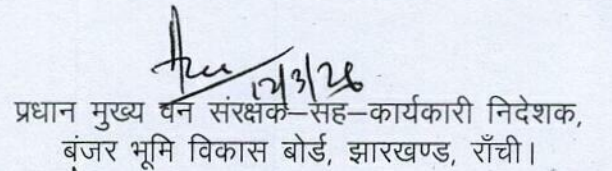 12/3/26
प्रधान मुख्य वन संरक्षक–सह–कार्यकारी निदेशक,
बंजर भूमि विकास बोर्ड, झारखण्ड, राँची।